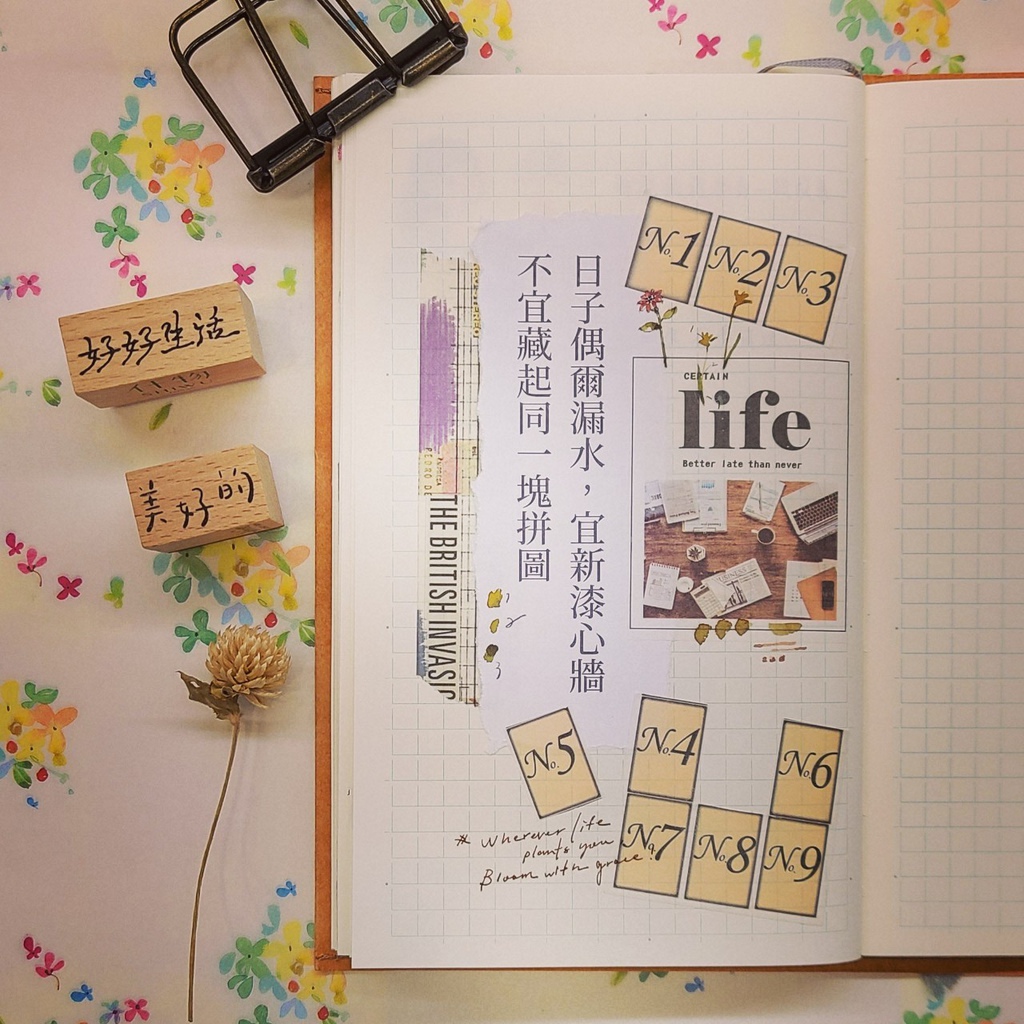 好好生活
美好的
日子偶爾漏水，宜新漆心牆
不宜藏起同一塊拼圖
THE BRITISH INVASIO
PEDRO DE
No.1
No.2
No.3
CERTAIN
life
Better late than never
1
2
3
No.5
No.4
No.6
No.7
No.8
No.9
* Wherever life
plants you
Bloom with grace.